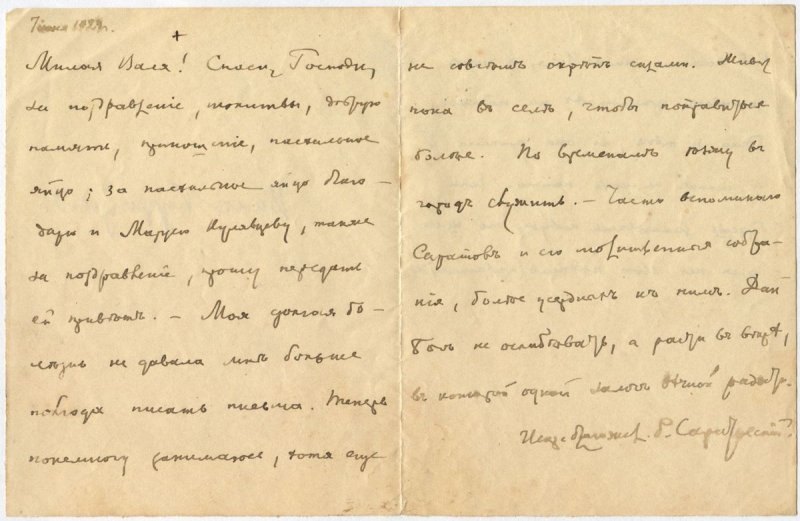 7 июня 1924 г.
+
Милая Валя! Спаси, Господи,
за поздравленіе, молитвы, добрую
память, приношеніе, пасхальное
яйцо; за пасхальное яйцо благо-
дарю и Марусю, также
за поздравленіе, прошу передать
ей привѣтъ. – Моя долгая бо-
лѣзнь не давала мнѣ больше
полгода писать письма. Теперь
понемногу занимаюсь, хотя еще
не совсѣмъ окрѣпъ силами. Живу
пока въ селѣ, чтобы поправиться
болѣе. По временамъ ѣзжу въ
городъ служить. – Часто вспоминаю
Саратовъ и его молитвенныя собра-
нія, болѣе усердныхъ къ нимъ. Дай
Богъ не ослабѣвать, а расти въ вѣрѣ,
въ которой одной залогъ вѣчной радости.